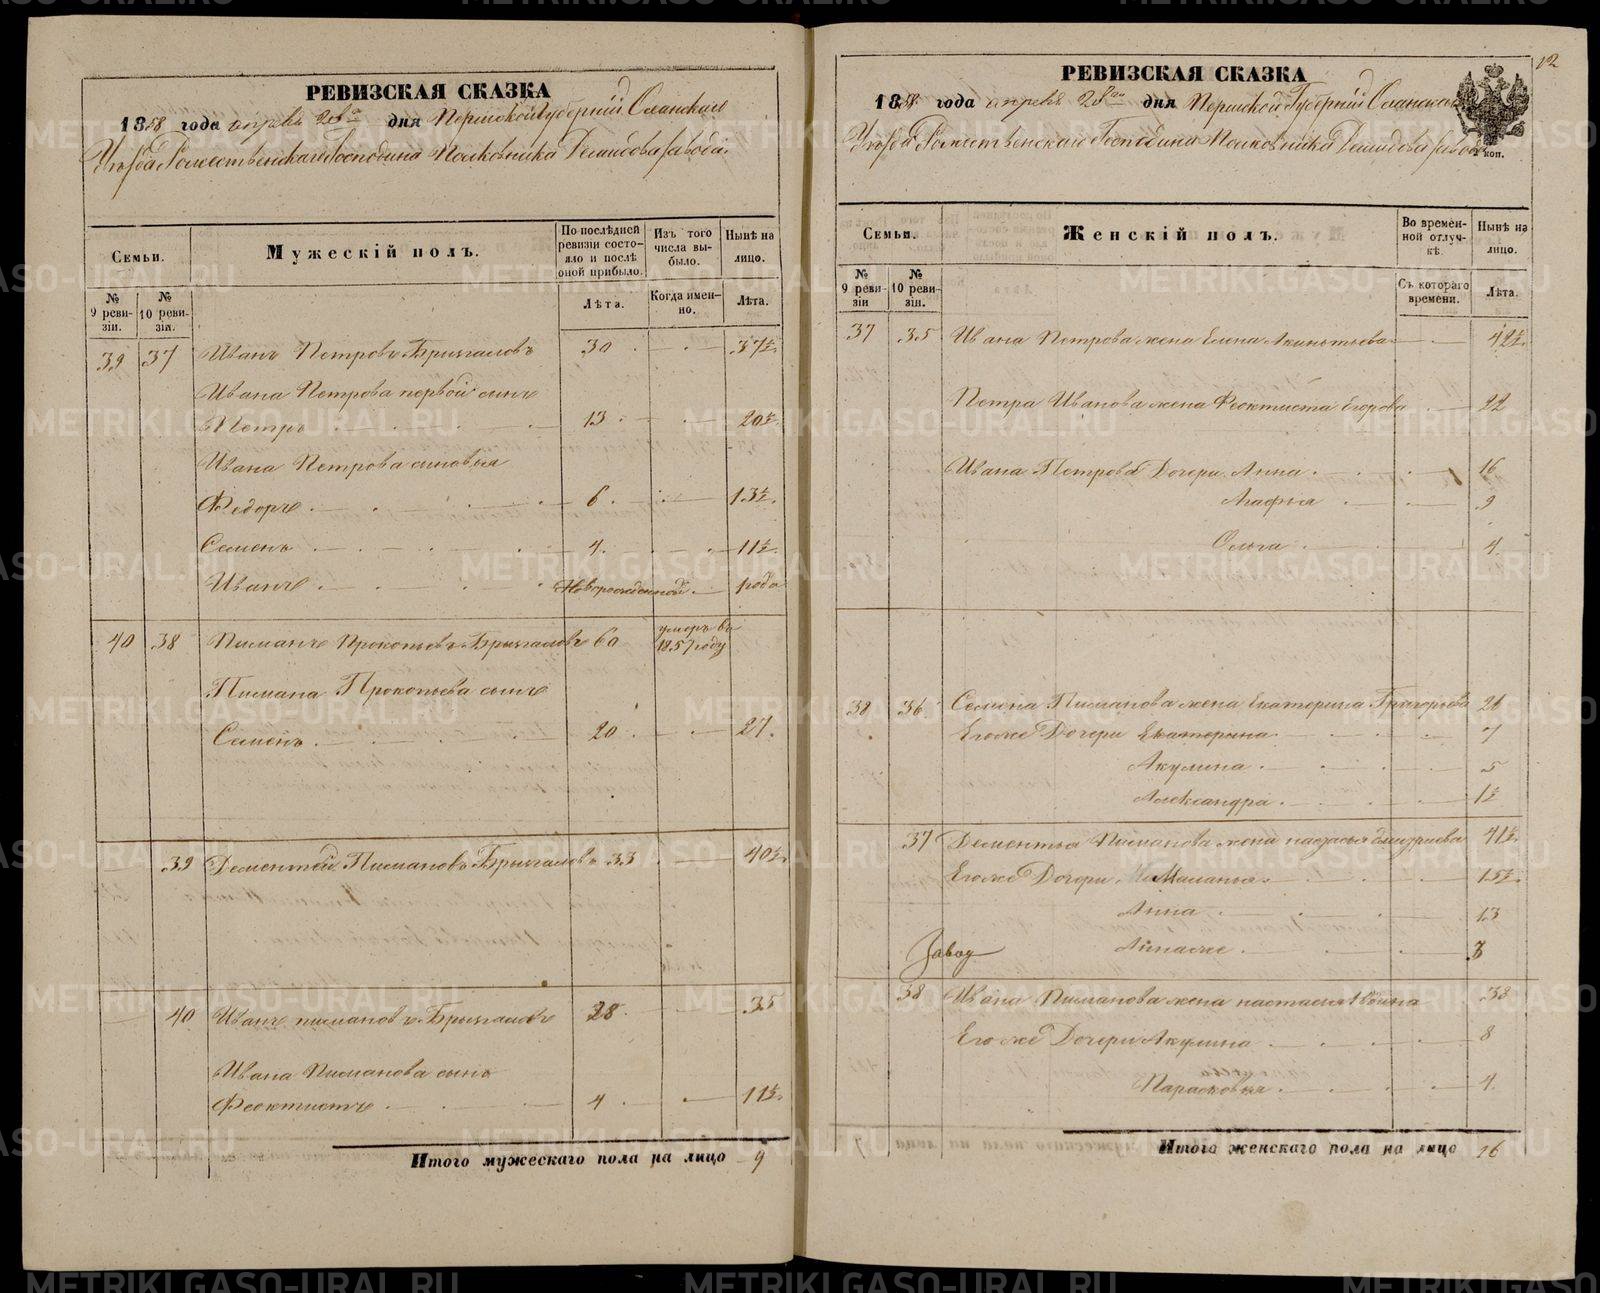 РЕВИЗСКАЯ СКАЗКА
1858 года апреля 28го дня Пермской Губернии Оханскаго
Уѣзда Рождественскаго Господина Полковника Демидова завода.
Семьи.
Мужескій полъ.
По послѣдней ревизіи состояло и послѣ оной прибыло.
Изъ того числа выбыло.
Нынѣ на лицо.
№ 9 ревизіи.
№ 10 ревизіи.
Лѣта.
Когда именно.
Лѣта.
39 37 Иванъ Петровъ Брызгаловъ 30 37½
Ивана Петрова первой сынъ
Петръ 13 20½
Ивана Петрова сыновья
Федоръ 6 13½
Семенъ 4 11½
Иванъ Новорожденной 1 года
40 38 Пиманъ Прокопьевъ Брызгаловъ 60 умеръ въ 1857 году
Пимана Прокопьева сынъ
Семенъ 20 27
39 Дементей Пимановъ Брызгаловъ 33 40½
40 Иванъ пимановъ Брызгаловъ 28 35
Ивана Пиманова сынъ
Феоктистъ 4 11½
Итого мужескаго пола на лицо 9
12
РЕВИЗСКАЯ СКАЗКА
1858 года апреля 28го дня Пермской Губернии Оханскаго
Уѣзда Рождественскаго Господина Полковника Демидова завода
коп.
Семьи.
Женскій полъ.
Во временной отлучкѣ.
Нынѣ на лицо.
№ 9 ревизіи
№ 10 ревизіи.
Съ котораго времени.
Лѣта.
37 35 Ивана Петрова жена Елена Акинтьева 42½
Петра Иванова жена Феоктиста Егорова 22
Ивана Петрова Дочери Анна 16
Агафья 9
Ольга 4
38 36 Семена Пиманова жена Екатерина Григорьева 26
Егоже Дочери Екатерина 7
Акулина 5
Александра 1½
37 Дементья Пиманова жена настасья дмитриева 41½
Егоже Дочери Маланья 15½
Анна 13
Завод Аннаже 3
38 Ивана Пиманова жена настасья 38
Егоже Дочери Акулина 8
Парасковья 4
Итого женскаго пола на лицо 16
METRIKI.GASO-URAL.RU